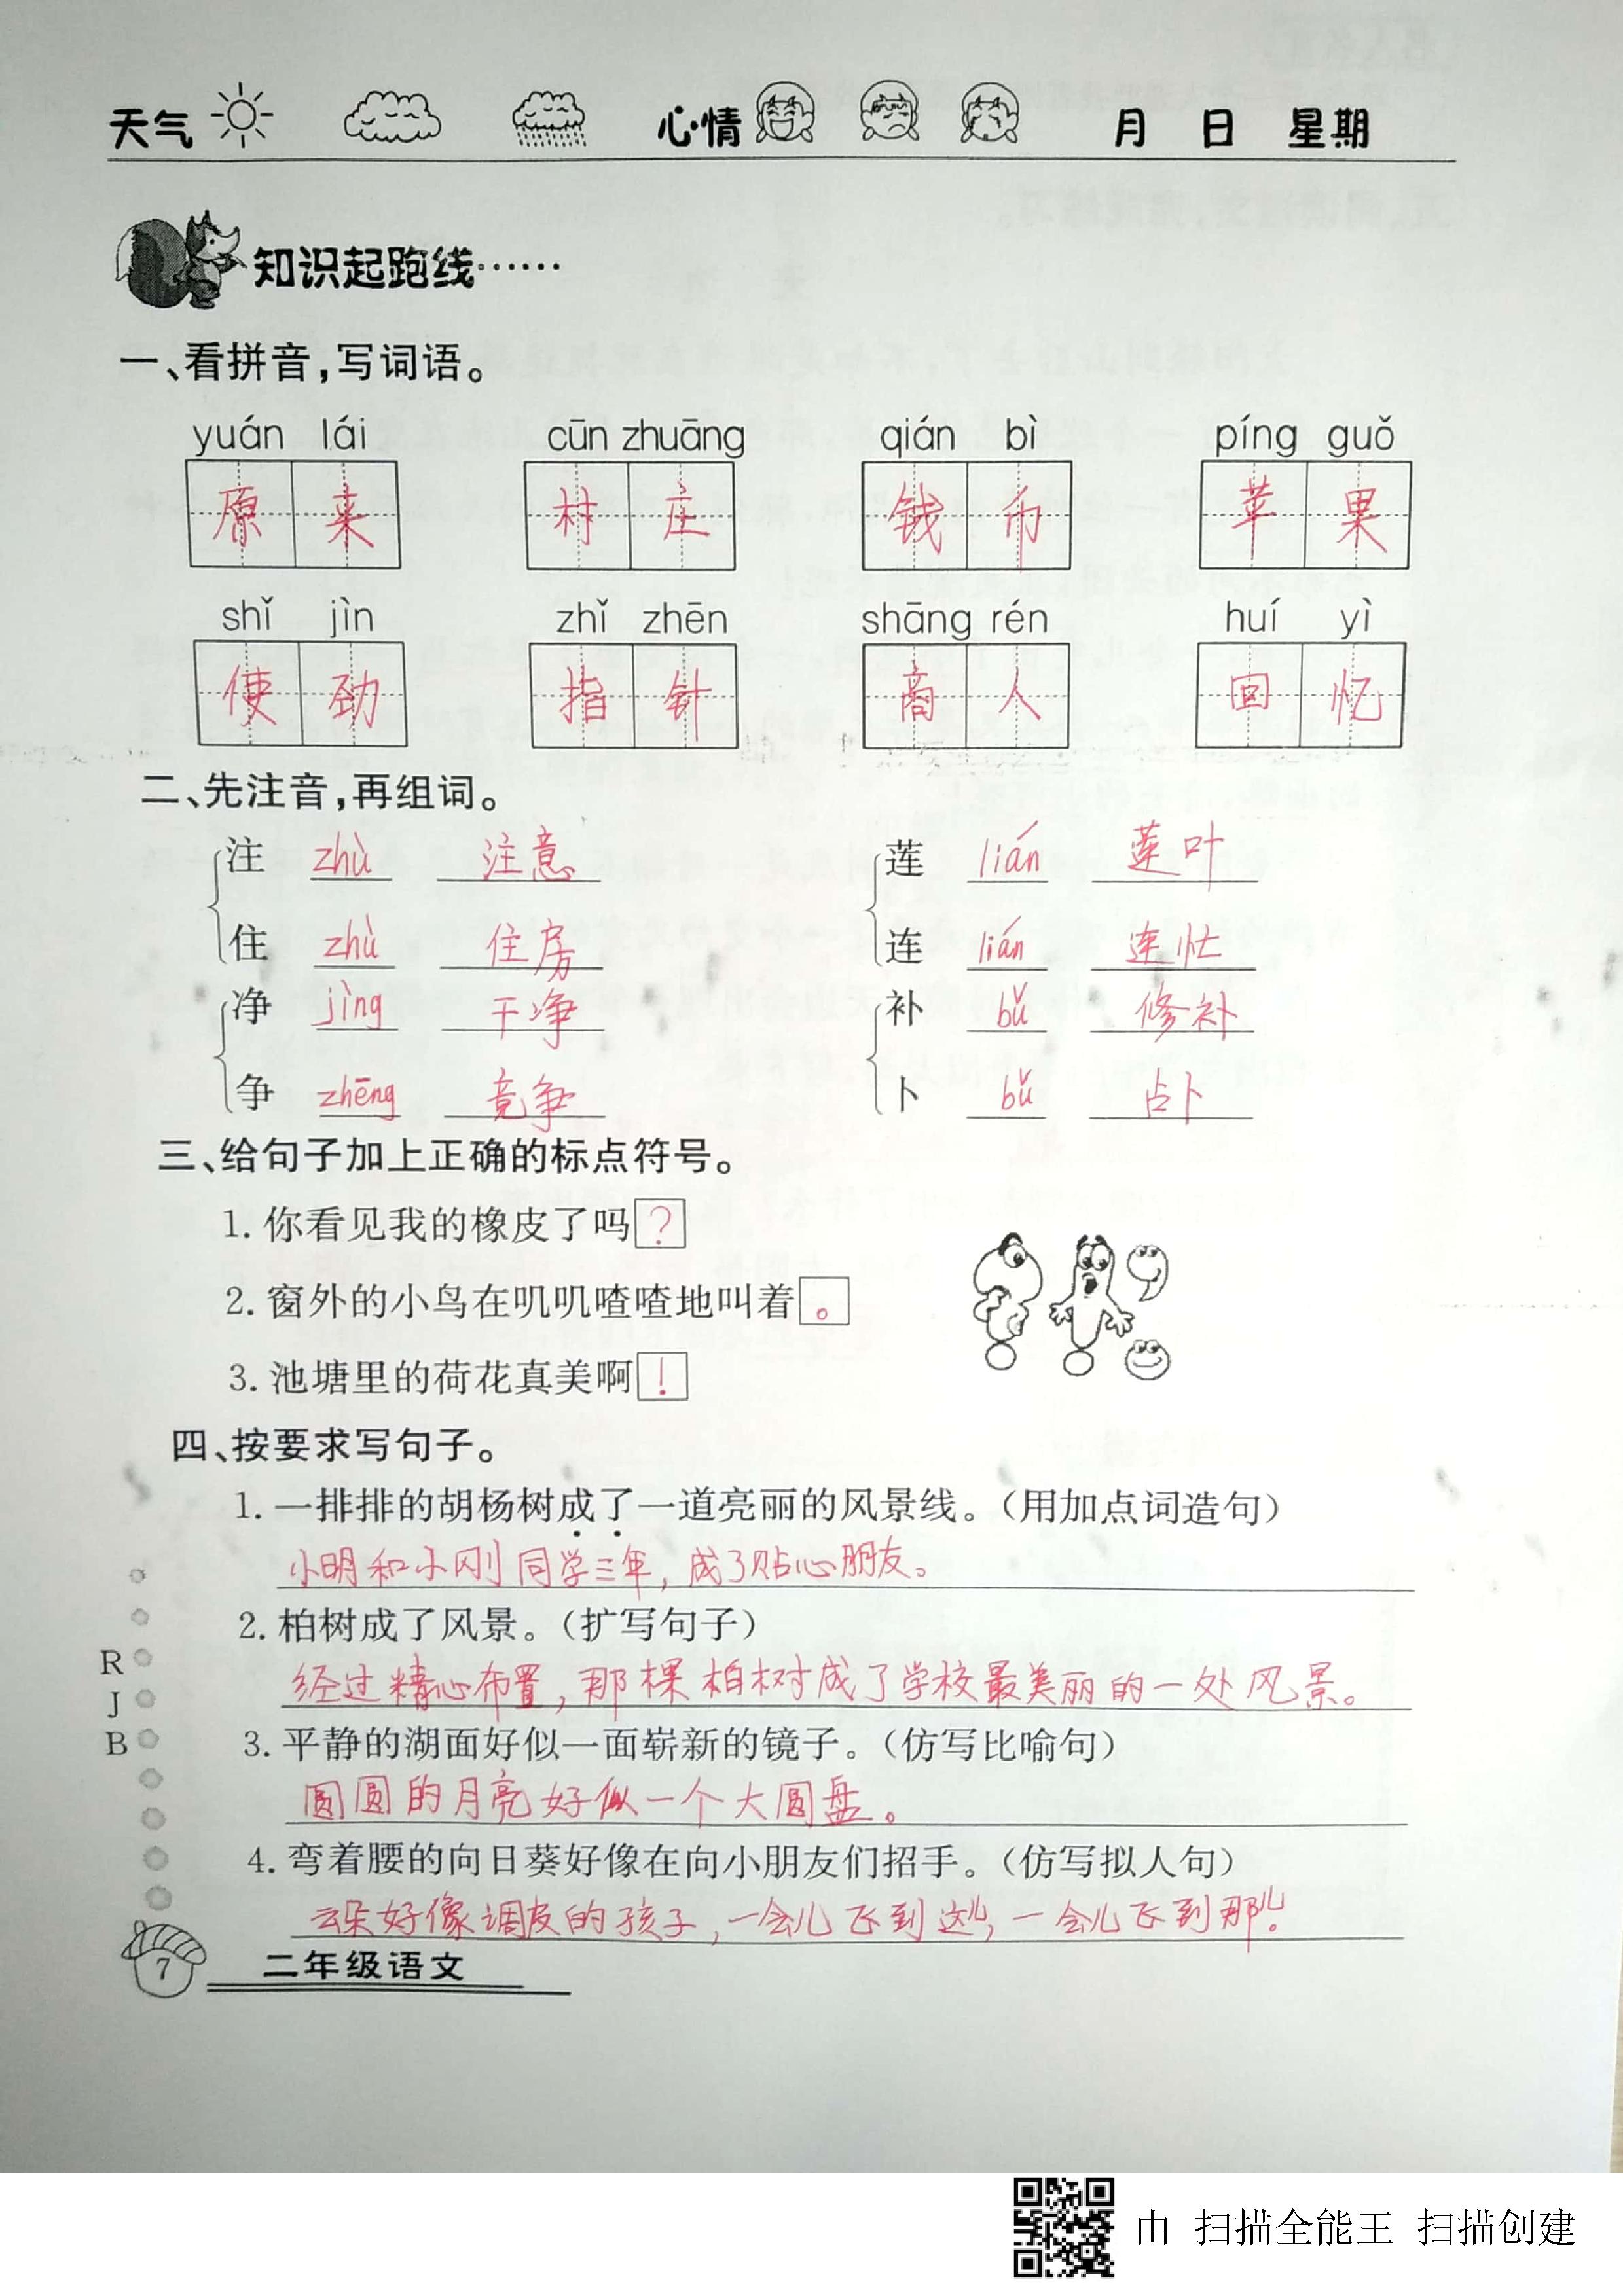 天气 心情 月 日 星期
知识起跑线……
一、看拼音,写词语。
yuán lái cūn zhuāng qián bì píng guǒ
原来 村庄 钱币 苹果
shǐ jìn zhǐ zhēn shāng rén huí yì
使劲 指针 商人 回忆
二、先注音,再组词。
注 zhù 注意 莲 lián 莲叶
住 zhù 住房 连 lián 连忙
净 jìng 干净 补 bǔ 修补
争 zhēng 竞争 卜 bǔ 占卜
三、给句子加上正确的标点符号。
1. 你看见我的橡皮了吗?
2. 窗外的小鸟在叽叽喳喳地叫着。
3. 池塘里的荷花真美啊!
四、按要求写句子。
1. 一排排的胡杨树成了一道亮丽的风景线。(用加点词造句)
小明和小刚同学三年,成了贴心朋友。
2. 柏树成了风景。(扩写句子)
经过精心布置,那棵柏树成了学校最美丽的一处风景。
3. 平静的湖面好似一面崭新的镜子。(仿写比喻句)
圆圆的月亮好似一个大圆盘。
4. 弯着腰的向日葵好像在向小朋友们招手。(仿写拟人句)
云朵好像调皮的孩子,一会儿飞到这儿,一会儿飞到那儿。
R
J
B
7 二年级语文
由 扫描全能王 扫描创建